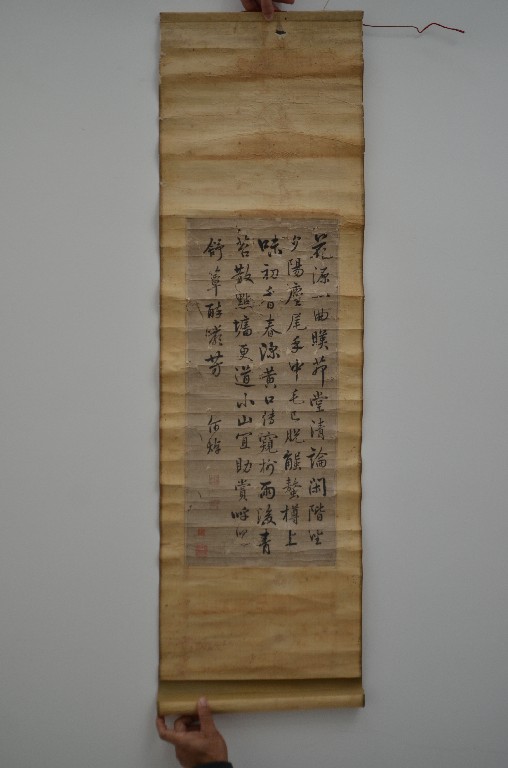 花源一曲暎茆堂清論閑階坐
夕陽麈尾手中毛已脫蟹螯樽上
味初香春深黃口傳窺樹雨後青
苔散點墻更道小山宜助賞呼兒
舒簟醉巖芳 何焯